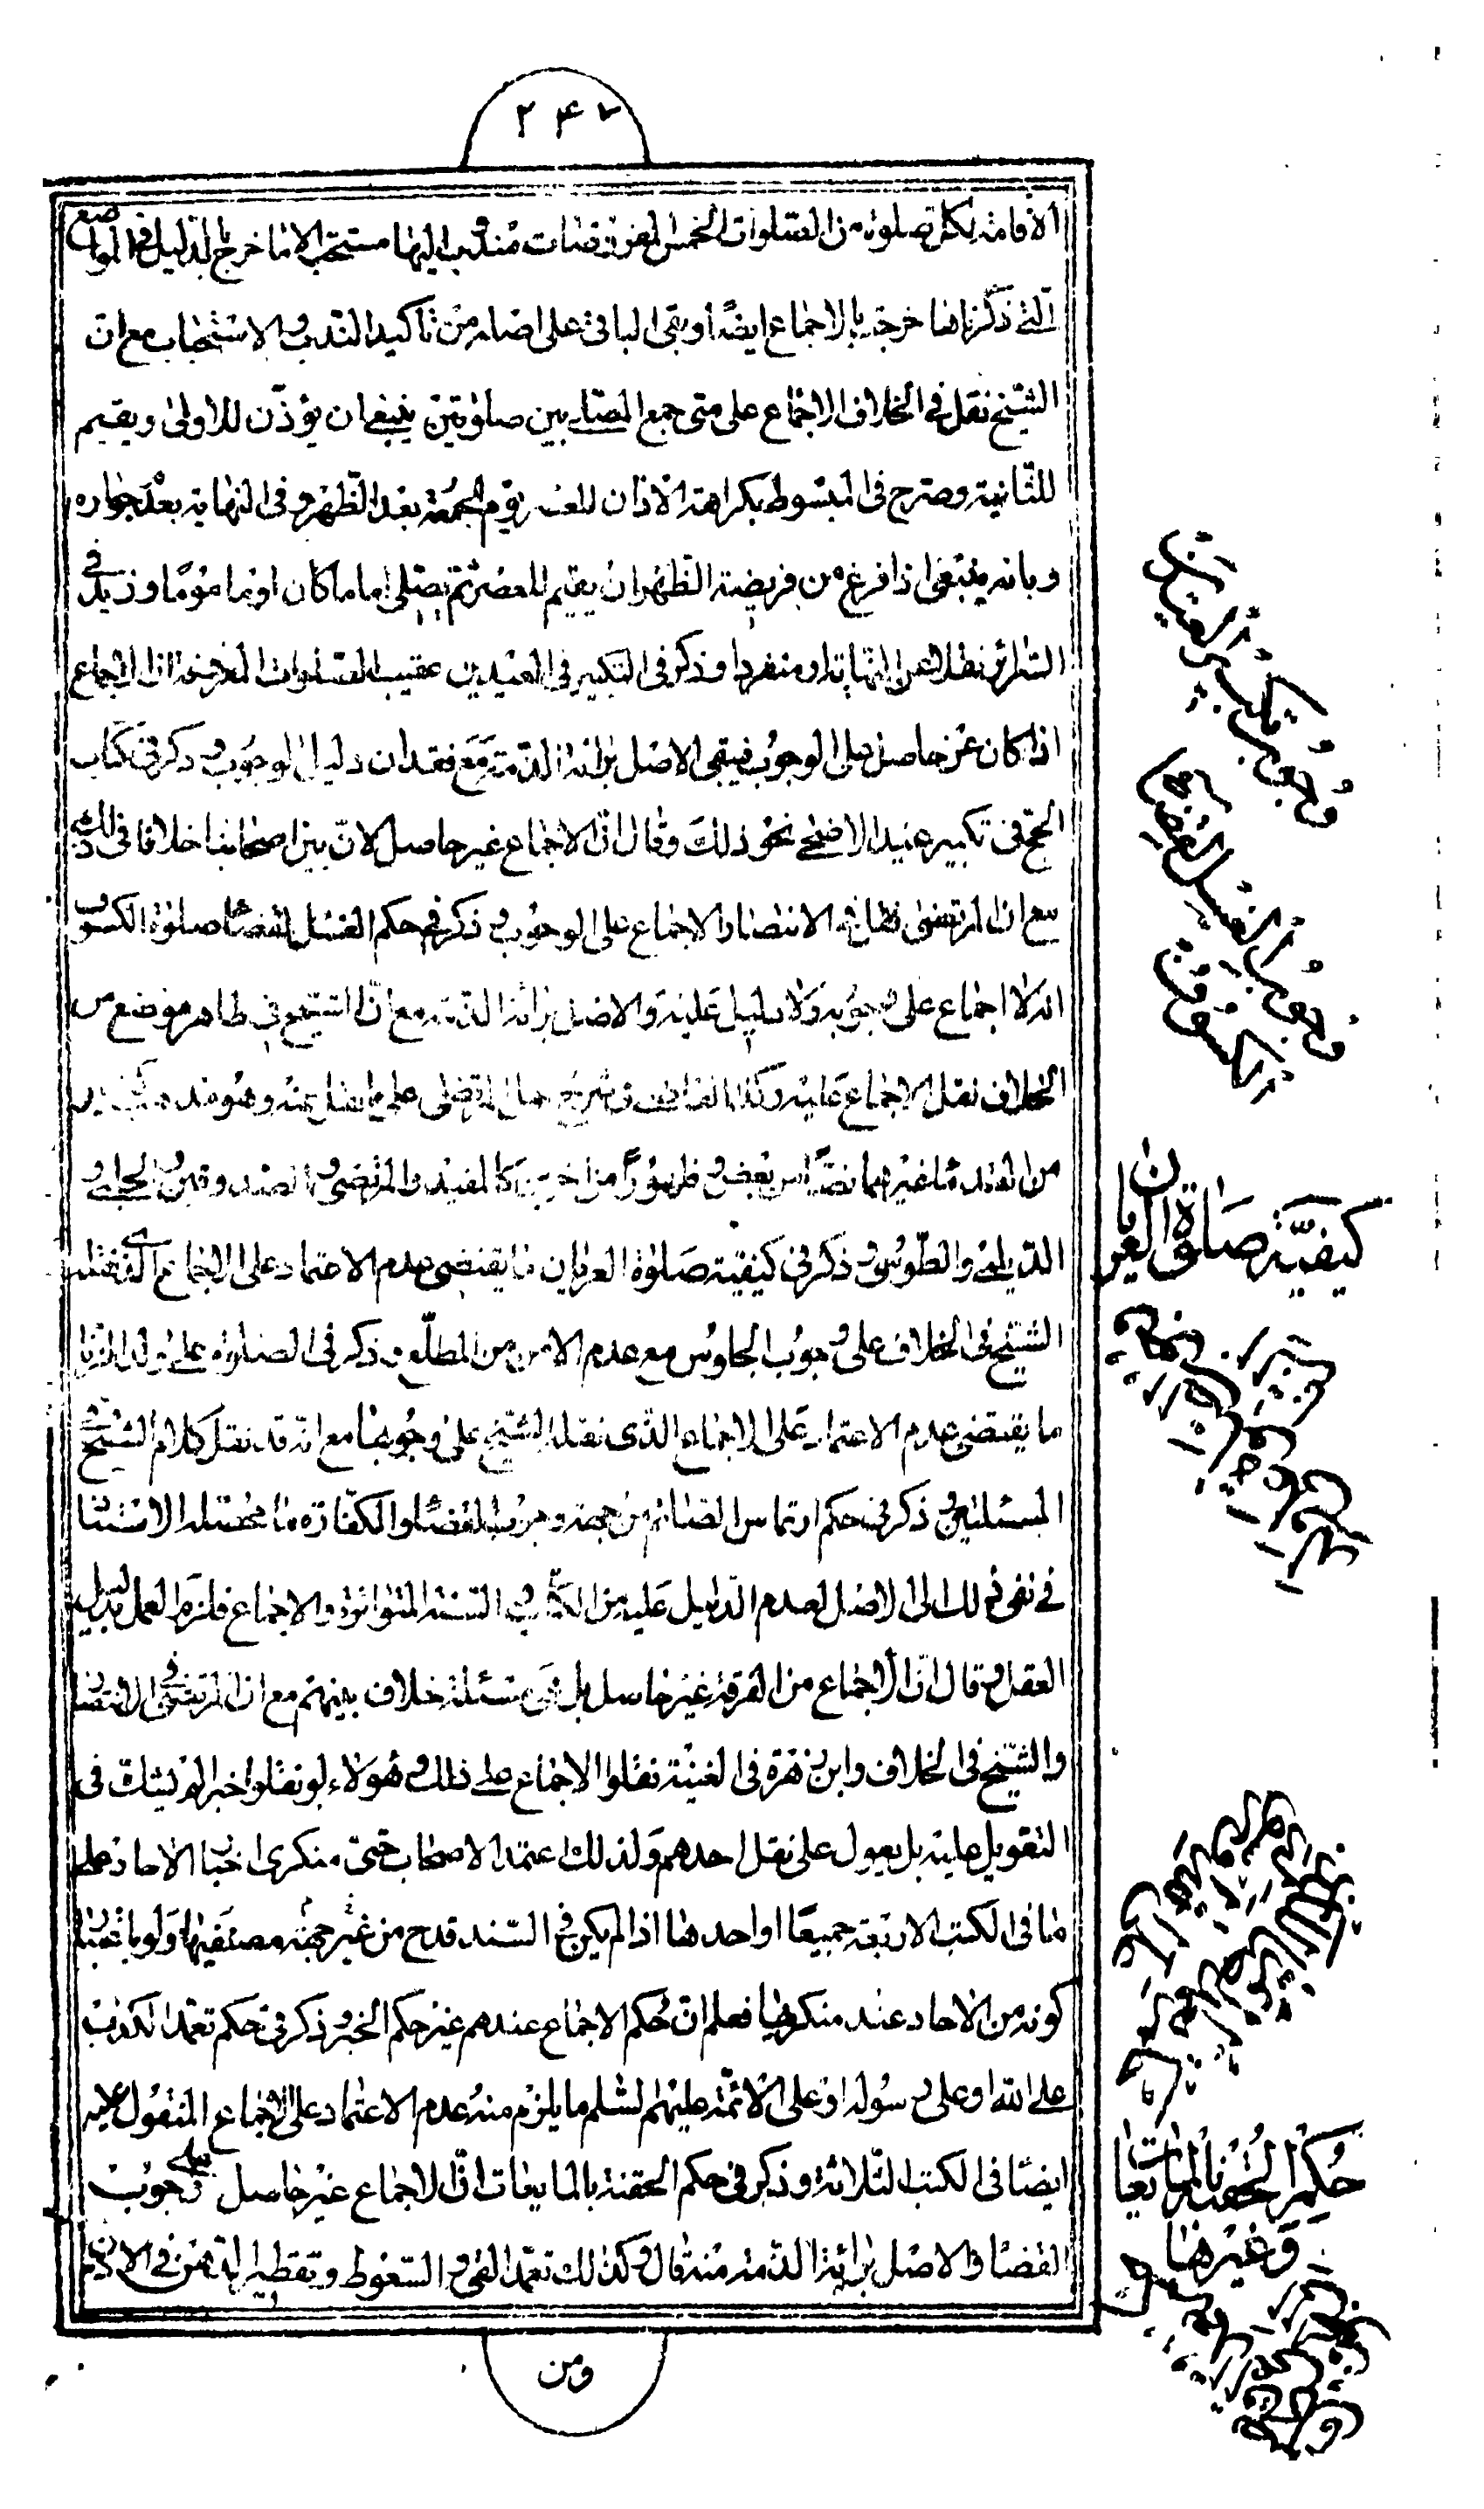 ۲۴۷
الاقامة لكل صلوة من الصلوات الخمس المفروضات مندوب اليها مستحب الا ما خرج بالدليل في المواضع
التي ذكرناها خرجت بالاجماع ايضا وبقى الباقى على اصله من تأكيد الندب والاستحباب مع ان
الشيخ نقل في الخلاف الاجماع على متى جمع المصلى بين صلوتين ينبغي ان يؤذن للاولى ويقيم
للثانية وصرح في المبسوط بكراهة الاذان للعصر يوم الجمعة بعد الظهر وفى النهاية بعدم جوازه
وبانه ينبغى اذا فرغ من فريضة الظهر ان يقيم للعصر ثم يصلى اماما كان او مأموما وزيد في
السرائر نقلا عن النهاية او منفردا وذكر في التكبير في العيدين عقيب الصلوات المفروضة ان الاجماع
اذا كان غير حاصل على الوجوب فيبقى الاصل برائة الذمة مع فقدان دليل الوجوب وذكر في كتاب
الحج في تكبير عيد الاضحى نحو ذلك وقال ان الاجماع غير حاصل لان بين اصحابنا خلافا في ذلك
مع ان المرتضى نقل في الانتصار الاجماع على الوجوب وذكر في حكم الغسل لقضاء صلوة الكسوف
انه لا اجماع على وجوبه ولا دليل عليه والاصل برائة الذمة مع ان الشيخ في ظاهر موضع من
الخلاف نقل الاجماع عليه وكذا القاضى في شرح جمل المرتضى على ما نقل عنه وهو مذهب كثير
من القدماء غيرهما نصا من بعض وظهورا من اخرين كالمفيد والمرتضى والصدوقين والحلبي و
الديلمى والطوسى وذكر في كيفية صلوة العريان ما يقتضى عدم الاعتماد على الاجماع الذي نقله
الشيخ في الخلاف على وجوب الجلوس مع عدم الامن من المطلع وذكر في الصلوة على ولد الزنا
ما يقتضى عدم الاعتماد على الاجماع الذى نقله الشيخ على وجوبها مع انه قد نقل كلام الشيخ في
المسئلتين وذكر في حكم ارتماس الصائم من جهة وجوب القضاء والكفارة ما محصله الاستناد
في نفى ذلك الى الاصل لعدم الدليل عليه من الكتاب والسنة المتواترة والاجماع فلزم العمل بدليل
العقل وقال ان الاجماع من الفرقة غير حاصل بل هي مسئلة خلاف بينهم مع ان المرتضى في الانتصار
والشيخ في الخلاف وابن زهرة في الغنية نقلوا الاجماع على ذلك وهؤلاء لو نقلوا خبرا لم يشك في
التعويل عليه بل يعول على نقل احدهم ولذلك اعتمد الاصحاب حتى منكرى اخبار الاحاد على
ما في الكتب الاربعة جميعا او احدها اذا لم يكن في السند قدح من غير جهة مصنفيها ولو باعتبار
كونه من الاحاد عند منكريها فعلم ان حكم الاجماع عندهم غير حكم الخبر وذكر في حكم تعمد الكذب
على الله او على رسوله او على الائمة عليهم السلم ما يلزم منه عدم الاعتماد على الاجماع المنقول عليه
ايضا في الكتب الثلاثة وذكر في حكم الحقنة بالمايعات ان الاجماع غير حاصل على وجوب
القضاء والاصل برائة الذمة منه قال وكذلك تعمد القى والسعوط وتقطير الدهن في الاذن
كيفية صلوة العريان
حكم الحقنة بالمايعات
وغيرها
ومن